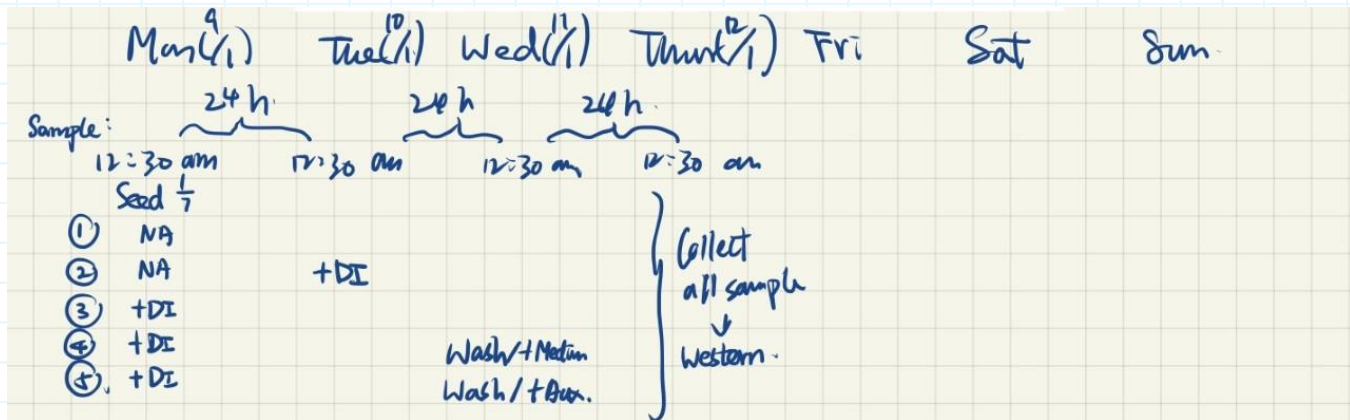 Mon(9/1) Tue(10/1) Wed(11/1) Thur(12/1) Fri Sat Sun
24 h. 24 h 24 h.
Sample:
12:30 am 12:30 am 12:30 am 12:30 am
Seed 1/7
① NA
② NA +DI
③ +DI
④ +DI Wash/+Medium
⑤. +DI Wash/+Aux.
Collect
all sample
↓
Western.